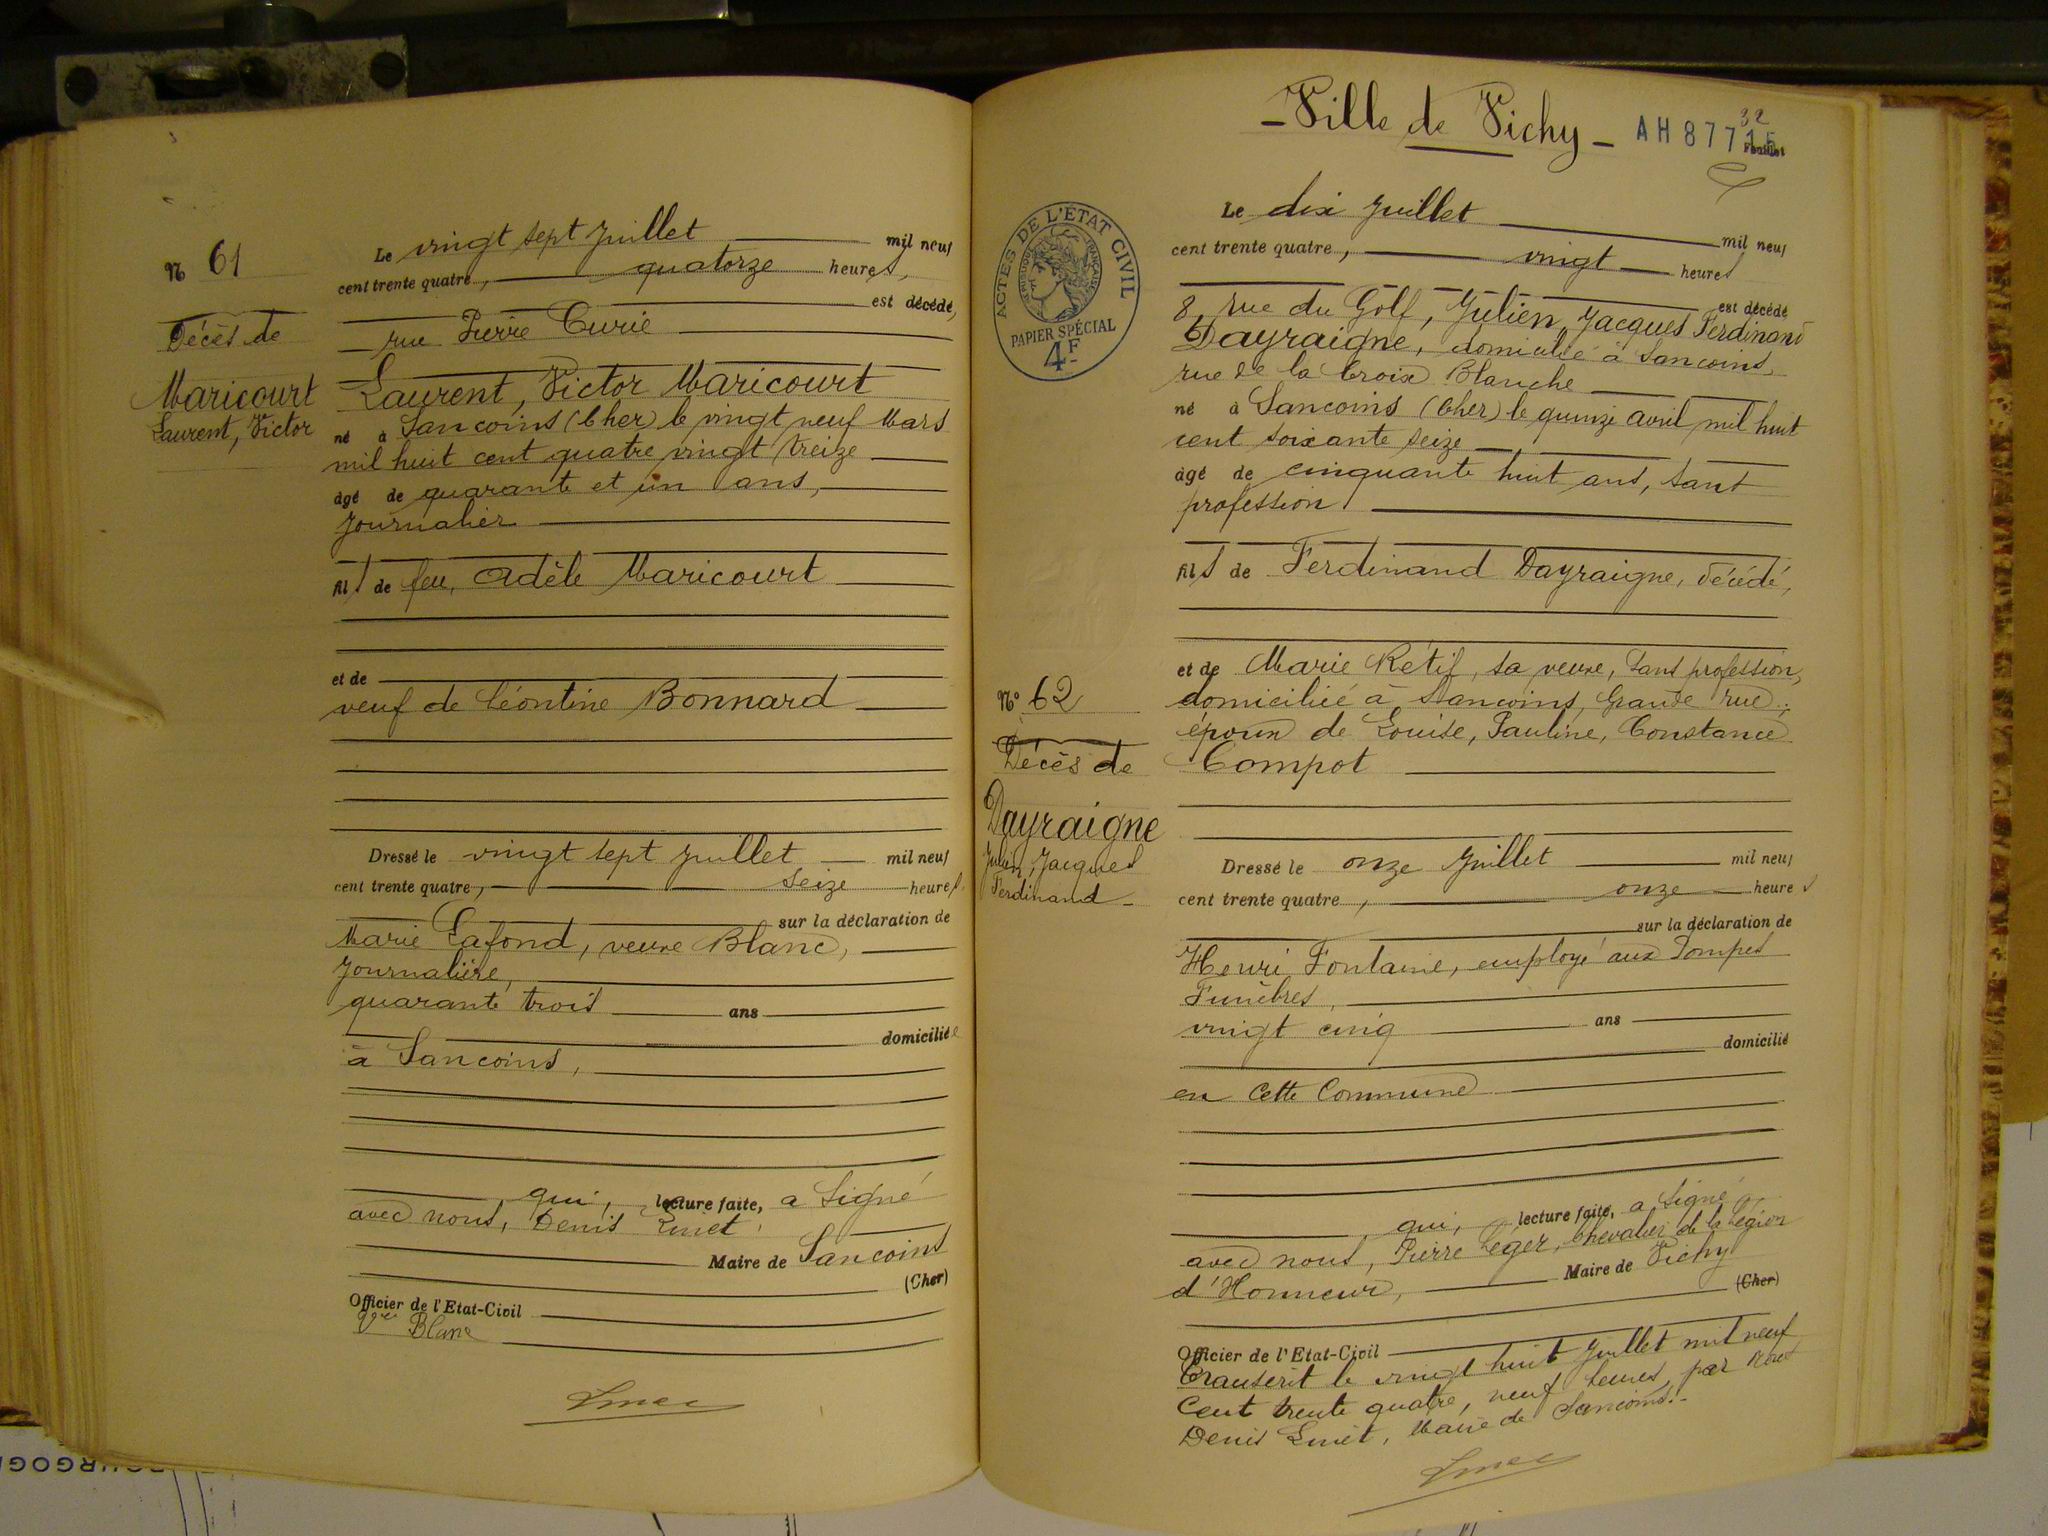 N 61
Décès de
Maricourt
Laurent, Victor
Le vingt sept Juillet mil neuf
cent trente quatre, quatorze heures,
est décédé,
rue Pierre Curie
Laurent, Victor Maricourt
né à Sancoins (Cher) le vingt neuf Mars
mil huit cent quatre vingt treize
âgé de quarante et un ans,
Journalier
fils de feu, Adèle Maricourt
et de
veuf de Léontine Bonnard
Dressé le vingt sept Juillet mil neuf
cent trente quatre, seize heures
sur la déclaration de
Marie Lafond, veuve Blanc,
Journalière,
quarante trois ans
domiciliée
à Sancoins,
qui, lecture faite, a signé
avec nous, Denis
Maire de Sancoins
(Cher)
Officier de l'Etat-Civil
Blanc
- Ville de Vichy -
AH 877
32
Feuillet
ACTES DE L'ÉTAT CIVIL
RÉPUBLIQUE FRANÇAISE
PAPIER SPÉCIAL
4F
Nº 62
Décès de
Dayraigne
Julien, Jacques
Ferdinand -
Le dix Juillet mil neuf
cent trente quatre, vingt heures
est décédé
8, rue du Golf, Julien, Jacques Ferdinand
Dayraigne, domicilié à Sancoins,
rue de la Croix Blanche
né à Sancoins (Cher) le quinze avril mil huit
cent soixante seize
âgé de cinquante huit ans, sans
profession
fils de Ferdinand Dayraigne, décédé,
et de Marie Rétif, sa veuve, sans profession,
domiciliée à Sancoins, Grande rue,
époux de Louise, Pauline, Constance
Compot
Dressé le onze Juillet mil neuf
cent trente quatre, onze heures
sur la déclaration de
Henri Fontaine, employé aux Pompes
Funèbres,
vingt cinq ans
domicilié
en cette Commune
qui, lecture faite, a signé
avec nous, Pierre Léger, Chevalier de la Légion
d'Honneur, Maire de Vichy
(Cher)
Officier de l'Etat-Civil
Transcrit le vingt huit Juillet mil neuf
Cent trente quatre, neuf heures, par Nous
Denis Maire de Sancoins.-
BOURGOG